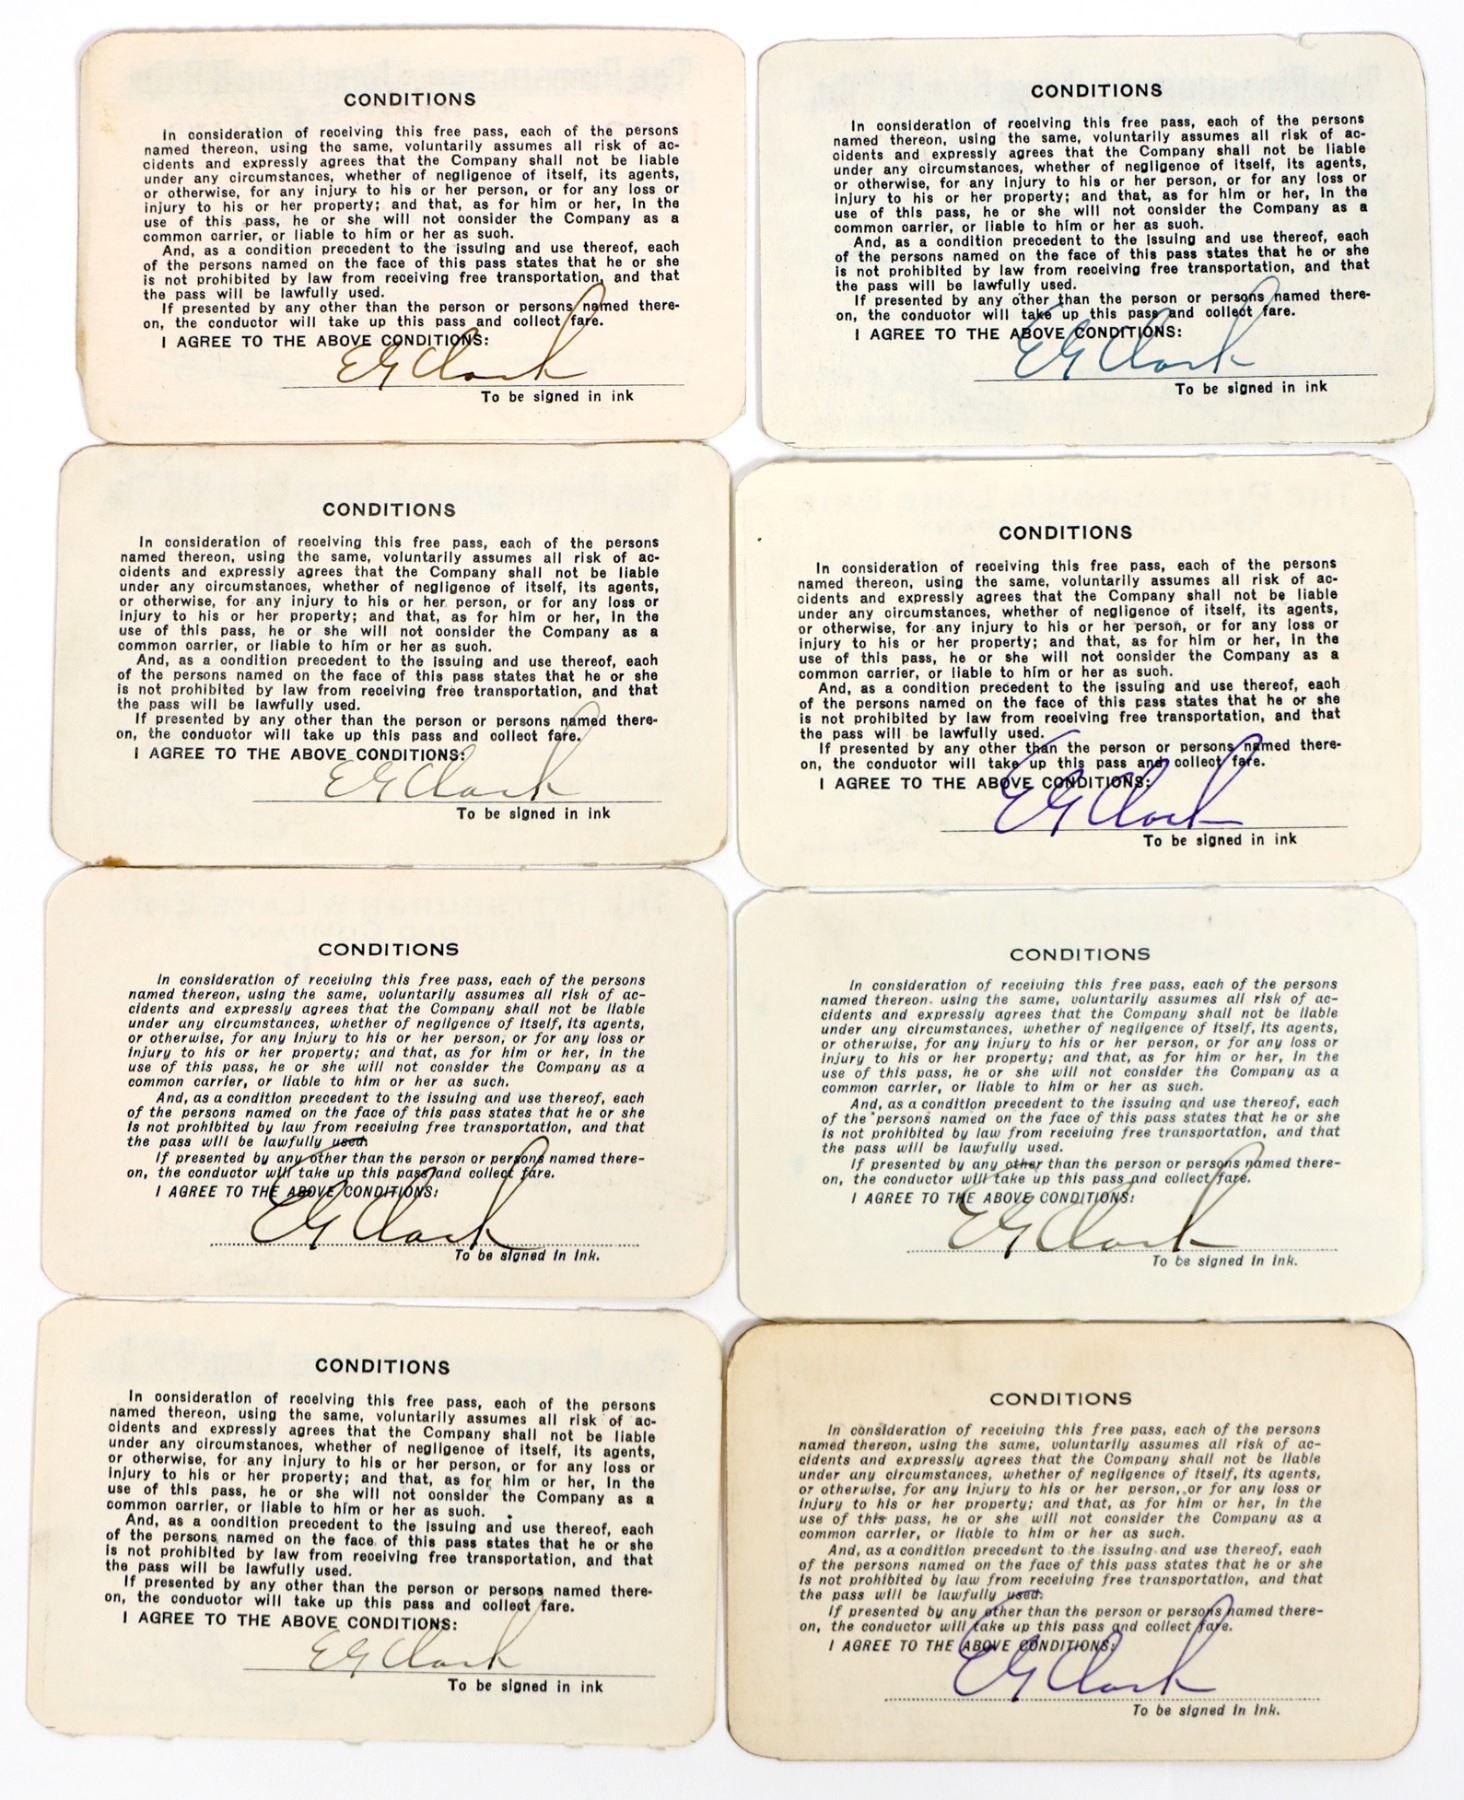 CONDITIONS
In consideration of receiving this free pass, each of the persons
named thereon, using the same, voluntarily assumes all risk of ac-
cidents and expressly agrees that the Company shall not be liable
under any circumstances, whether of negligence of itself, its agents,
or otherwise, for any injury to his or her person, or for any loss or
injury to his or her property; and that, as for him or her, in the
use of this pass, he or she will not consider the Company as a
common carrier, or liable to him or her as such.
And, as a condition precedent to the issuing and use thereof, each
of the persons named on the face of this pass states that he or she
is not prohibited by law from receiving free transportation, and that
the pass will be lawfully used.
If presented by any other than the person or persons named there-
on, the conductor will take up this pass and collect fare.
I AGREE TO THE ABOVE CONDITIONS:
E G Clark
To be signed in ink
CONDITIONS
In consideration of receiving this free pass, each of the persons
named thereon, using the same, voluntarily assumes all risk of ac-
cidents and expressly agrees that the Company shall not be liable
under any circumstances, whether of negligence of itself, its agents,
or otherwise, for any injury to his or her person, or for any loss or
injury to his or her property; and that, as for him or her, in the
use of this pass, he or she will not consider the Company as a
common carrier, or liable to him or her as such.
And, as a condition precedent to the issuing and use thereof, each
of the persons named on the face of this pass states that he or she
is not prohibited by law from receiving free transportation, and that
the pass will be lawfully used.
If presented by any other than the person or persons named there-
on, the conductor will take up this pass and collect fare.
I AGREE TO THE ABOVE CONDITIONS:
E G Clark
To be signed in ink
CONDITIONS
In consideration of receiving this free pass, each of the persons
named thereon, using the same, voluntarily assumes all risk of ac-
cidents and expressly agrees that the Company shall not be liable
under any circumstances, whether of negligence of itself, its agents,
or otherwise, for any injury to his or her person, or for any loss or
injury to his or her property; and that, as for him or her, in the
use of this pass, he or she will not consider the Company as a
common carrier, or liable to him or her as such.
And, as a condition precedent to the issuing and use thereof, each
of the persons named on the face of this pass states that he or she
is not prohibited by law from receiving free transportation, and that
the pass will be lawfully used.
If presented by any other than the person or persons named there-
on, the conductor will take up this pass and collect fare.
I AGREE TO THE ABOVE CONDITIONS:
E G Clark
To be signed in ink
CONDITIONS
In consideration of receiving this free pass, each of the persons
named thereon, using the same, voluntarily assumes all risk of ac-
cidents and expressly agrees that the Company shall not be liable
under any circumstances, whether of negligence of itself, its agents,
or otherwise, for any injury to his or her person, or for any loss or
injury to his or her property; and that, as for him or her, in the
use of this pass, he or she will not consider the Company as a
common carrier, or liable to him or her as such.
And, as a condition precedent to the issuing and use thereof, each
of the persons named on the face of this pass states that he or she
is not prohibited by law from receiving free transportation, and that
the pass will be lawfully used.
If presented by any other than the person or persons named there-
on, the conductor will take up this pass and collect fare.
I AGREE TO THE ABOVE CONDITIONS:
E G Clark
To be signed in ink
CONDITIONS
In consideration of receiving this free pass, each of the persons
named thereon, using the same, voluntarily assumes all risk of ac-
cidents and expressly agrees that the Company shall not be liable
under any circumstances, whether of negligence of itself, its agents,
or otherwise, for any injury to his or her person, or for any loss or
injury to his or her property; and that, as for him or her, in the
use of this pass, he or she will not consider the Company as a
common carrier, or liable to him or her as such.
And, as a condition precedent to the issuing and use thereof, each
of the persons named on the face of this pass states that he or she
is not prohibited by law from receiving free transportation, and that
the pass will be lawfully used.
If presented by any other than the person or persons named there-
on, the conductor will take up this pass and collect fare.
I AGREE TO THE ABOVE CONDITIONS:
E G Clark
To be signed in ink.
CONDITIONS
In consideration of receiving this free pass, each of the persons
named thereon, using the same, voluntarily assumes all risk of ac-
cidents and expressly agrees that the Company shall not be liable
under any circumstances, whether of negligence of itself, its agents,
or otherwise, for any injury to his or her person, or for any loss or
injury to his or her property; and that, as for him or her, in the
use of this pass, he or she will not consider the Company as a
common carrier, or liable to him or her as such.
And, as a condition precedent to the issuing and use thereof, each
of the persons named on the face of this pass states that he or she
is not prohibited by law from receiving free transportation, and that
the pass will be lawfully used.
If presented by any other than the person or persons named there-
on, the conductor will take up this pass and collect fare.
I AGREE TO THE ABOVE CONDITIONS:
E G Clark
To be signed in ink.
CONDITIONS
In consideration of receiving this free pass, each of the persons
named thereon, using the same, voluntarily assumes all risk of ac-
cidents and expressly agrees that the Company shall not be liable
under any circumstances, whether of negligence of itself, its agents,
or otherwise, for any injury to his or her person, or for any loss or
injury to his or her property; and that, as for him or her, in the
use of this pass, he or she will not consider the Company as a
common carrier, or liable to him or her as such.
And, as a condition precedent to the issuing and use thereof, each
of the persons named on the face of this pass states that he or she
is not prohibited by law from receiving free transportation, and that
the pass will be lawfully used.
If presented by any other than the person or persons named there-
on, the conductor will take up this pass and collect fare.
I AGREE TO THE ABOVE CONDITIONS:
E G Clark
To be signed in ink
CONDITIONS
In consideration of receiving this free pass, each of the persons
named thereon, using the same, voluntarily assumes all risk of ac-
cidents and expressly agrees that the Company shall not be liable
under any circumstances, whether of negligence of itself, its agents,
or otherwise, for any injury to his or her person, or for any loss or
injury to his or her property; and that, as for him or her, in the
use of this pass, he or she will not consider the Company as a
common carrier, or liable to him or her as such.
And, as a condition precedent to the issuing and use thereof, each
of the persons named on the face of this pass states that he or she
is not prohibited by law from receiving free transportation, and that
the pass will be lawfully used.
If presented by any other than the person or persons named there-
on, the conductor will take up this pass and collect fare.
I AGREE TO THE ABOVE CONDITIONS:
E G Clark
To be signed in ink.